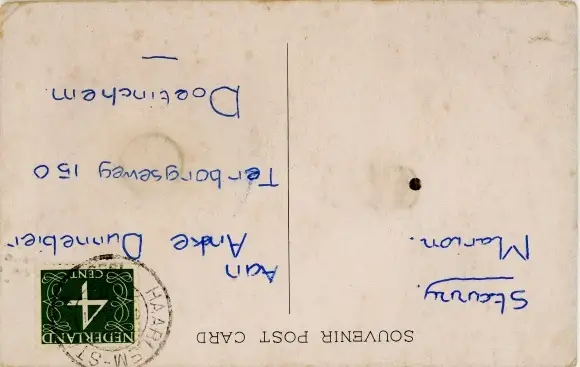 SOUVENIR POST CARD
Starry.
Marion.
NEDERLAND
4
CENT
HAARLEM-ST
Aan
Anke Dunnebier
Terborgseweg 150
Doetinchem.